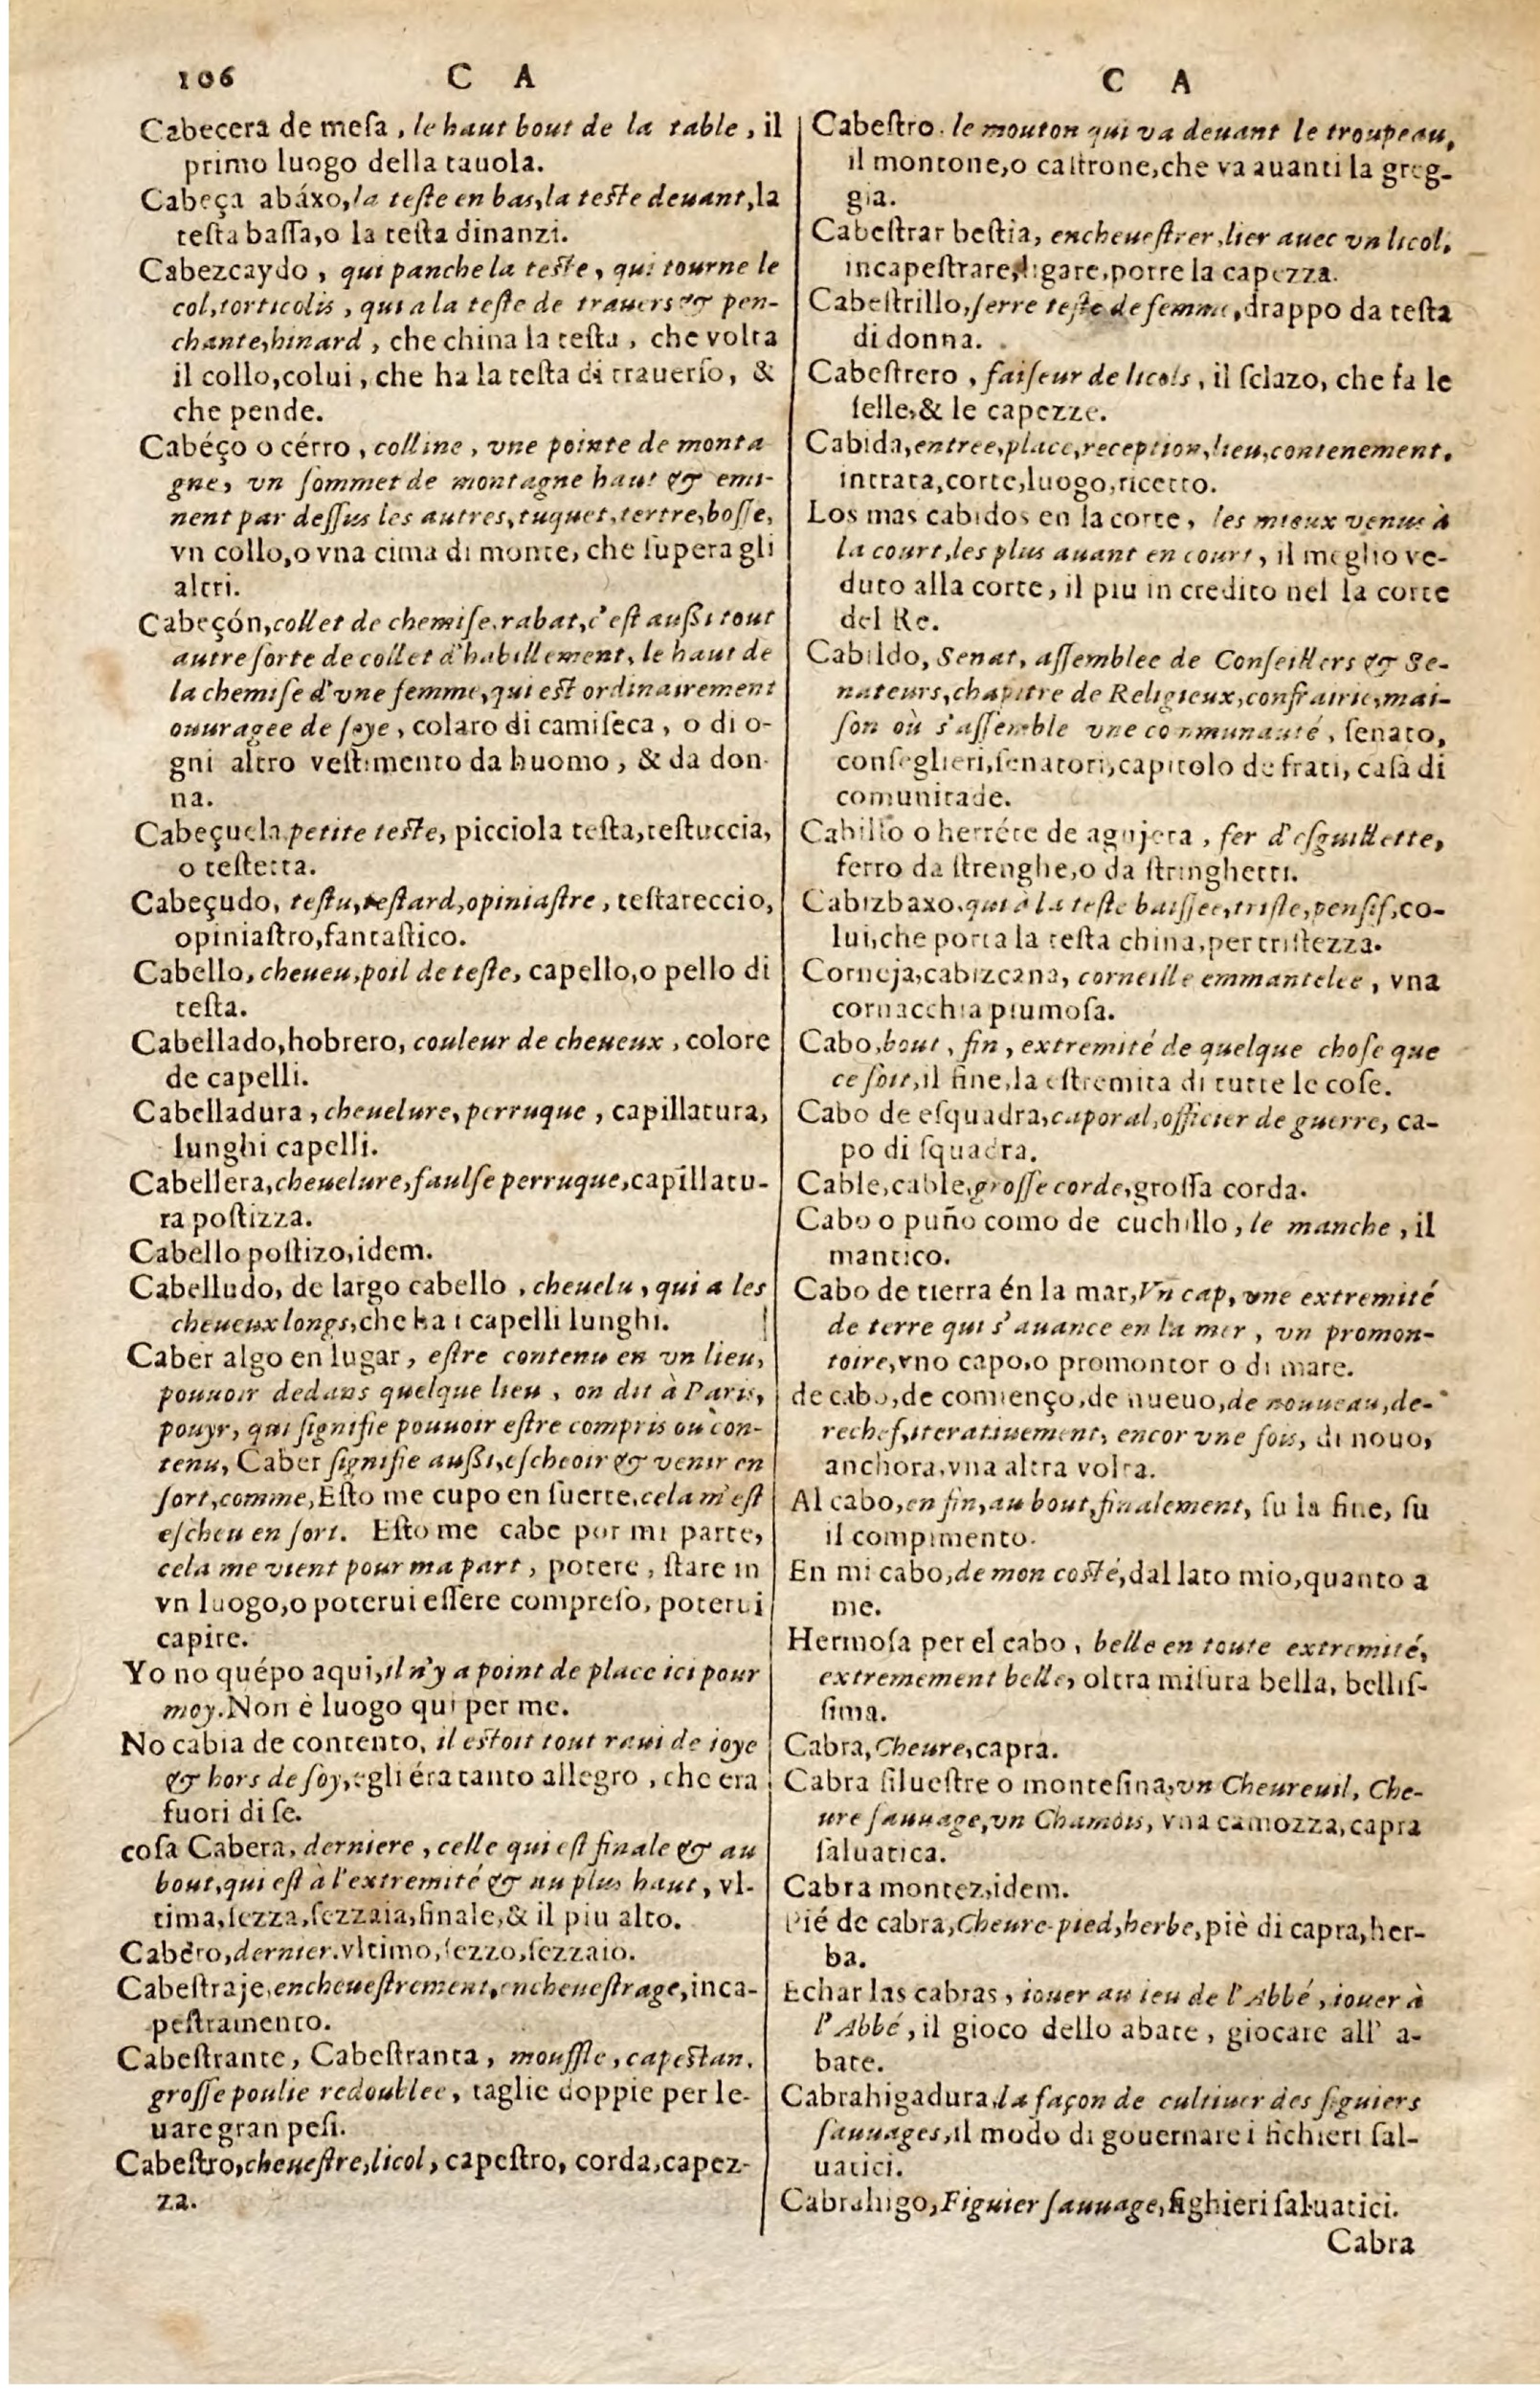 106 C A
Cabecera de meſa, le haut bout de la table, il
primo luogo della tauola.
Cabeça abáxo, la teſte en bas, la teſte deuant, la
teſta baſſa, o la teſta dinanzi.
Cabezcaydo, qui panche la teſte, qui tourne le
col, torticolis, qui a la teſte de trauers & pen-
chante, hinard, che china la teſta, che volta
il collo, colui, che ha la teſta di trauerſo, &
che pende.
Cabéço o cérro, colline, vne pointe de monta
gne, vn ſommet de montagne haut & emi-
nent par deſſus les autres, tuquet, tertre, boſſe,
vn collo, o vna cima di monte, che ſupera gli
altri.
Cabeçón, collet de chemiſe, rabat, c'eſt auſsi tout
autre ſorte de collet d'habillement, le haut de
la chemiſe d'vne femme, qui eſt ordinairement
ouuragee de ſoye, colaro di camiſeca, o di o-
gni altro veſtimento da huomo, & da don-
na.
Cabeçuela petite teſte, picciola teſta, teſtuccia,
o teſtetta.
Cabeçudo, teſtu, teſtard, opiniaſtre, teſtareccio,
opiniaſtro, fantaſtico.
Cabello, cheueu, poil de teſte, capello, o pello di
teſta.
Cabellado, hobrero, couleur de cheueux, colore
de capelli.
Cabelladura, cheuelure, perruque, capillatura,
lunghi capelli.
Cabellera, cheuelure, faulſe perruque, capillatu-
ra poſtizza.
Cabello poſtizo, idem.
Cabelludo, de largo cabello, cheuelu, qui a les
cheueux longs, che ha i capelli lunghi.
Caber algo en lugar, eſtre contenu en vn lieu,
pouuoir dedans quelque lieu, on dit à Paris,
pouyr, qui ſignifie pouuoir eſtre compris ou con-
tenu, Caber ſignifie auſsi, eſcheoir & venir en
ſort, comme, Eſto me cupo en ſuerte, cela m'eſt
eſcheu en ſort. Eſto me cabe por mi parte,
cela me vient pour ma part, potere, ſtare in
vn luogo, o poterui eſſere compreſo, poterui
capire.
Yo no quépo aqui, il n'y a point de place ici pour
moy. Non è luogo qui per me.
No cabia de contento, il eſtoit tout raui de ioye
& hors de ſoy, egli éra tanto allegro, che era
fuori di ſe.
coſa Cabera, derniere, celle qui eſt finale & au
bout, qui eſt à l'extremité & au plus haut, vl-
tima, ſezza, ſezzaia, finale, & il piu alto.
Cabéro, dernier. vltimo, ſezzo, ſezzaio.
Cabeſtraje, encheueſtrement, encheueſtrage, inca-
peſtramento.
Cabeſtrante, Cabeſtranta, mouffle, capeſtan,
groſſe poulie redoublee, taglie doppie per le-
uare gran peſi.
Cabeſtro, cheueſtre, licol, capeſtro, corda, capez-
za.
C A
Cabeſtro. le mouton qui va deuant le troupeau,
il montone, o caſtrone, che va auanti la greg-
gia.
Cabeſtrar beſtia, encheueſtrer, lier auec vn licol,
incapeſtrare, ligare, porre la capezza.
Cabeſtrillo, ſerre teſte de femme, drappo da teſta
di donna.
Cabeſtrero, faiſeur de licols, il ſelazo, che fa le
ſelle, & le capezze.
Cabida, entree, place, reception, lieu, contenement,
intrata, corte, luogo, ricetto.
Los mas cabidos en la corte, les mieux venus à
la court, les plus auant en court, il meglio ve-
duto alla corte, il piu in credito nel la corte
del Re.
Cabildo, Senat, aſſemblee de Conſeillers & Se-
nateurs, chapitre de Religieux, confrairie, mai-
ſon où s'aſſemble vne communauté, ſenato,
conſeglieri, ſenatori, capitolo de frati, caſa di
comunitade.
Cabillo o herréte de agujeta, fer d'eſguillette,
ferro da ſtrenghe, o da ſtringhetti.
Cabizbaxo, qui à la teſte baiſſee, triſte, penſif, co-
lui, che porta la teſta china, per triſtezza.
Corneja, cabizcana, corneille emmantelee, vna
cornacchia piumoſa.
Cabo, bout, fin, extremité de quelque choſe que
ce ſoit, il fine, la eſtremita di tutte le coſe.
Cabo de eſquadra, caporal, officier de guerre, ca-
po di ſquadra.
Cable, cable, groſſe corde, groſſa corda.
Cabo o puño como de cuchillo, le manche, il
mantico.
Cabo de tierra én la mar, Vn cap, vne extremité
de terre qui s'auance en la mer, vn promon-
toire, vno capo, o promontor o di mare.
de cabo, de comienço, de nueuo, de nouueau, de-
rechef, iteratiuement, encor vne fois, di nouo,
anchora, vna altra volta.
Al cabo, en fin, au bout, finalement, ſu la fine, ſu
il compimento.
En mi cabo, de mon coſté, dal lato mio, quanto a
me.
Hermoſa per el cabo, belle en toute extremité,
extremement belle, oltra miſura bella, belliſ-
ſima.
Cabra, Cheure, capra.
Cabra ſilueſtre o monteſina, vn Cheureuil, Che-
ure ſauuage, vn Chamois, vna camozza, capra
ſaluatica.
Cabra montez, idem.
Pié de cabra, Cheure-pied, herbe, piè di capra, her-
ba.
Echar las cabras, iouer au ieu de l'Abbé, iouer à
l'Abbé, il gioco dello abate, giocare all' a-
bate.
Cabrahigadura, la façon de cultiuer des figuiers
ſauuages, il modo di gouernare i fichieri ſal-
uatici.
Cabrahigo, Figuier ſauuage, fighieri ſaluatici.
Cabra